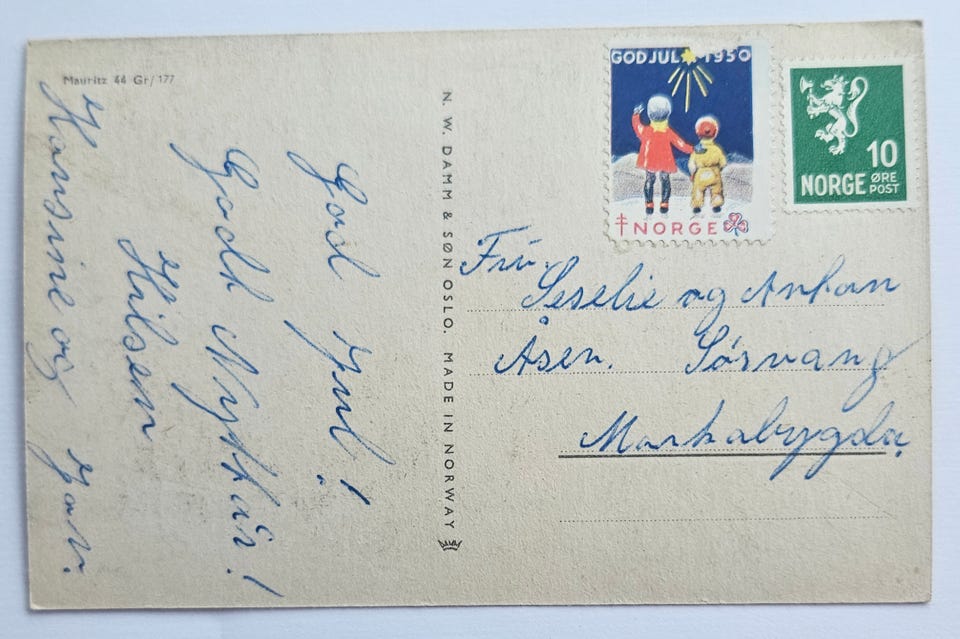 Mauritz 44 Gr/177
God Jul!
Godt Nyttår!
Hilsen
Hansine og
N. W. DAMM & SØN OSLO. MADE IN NORWAY
GOD JUL 1950
NORGE
10
NORGE ØRE
POST
Fru.
Seselie og Anton
Åsen. Sørvang
Markabygda